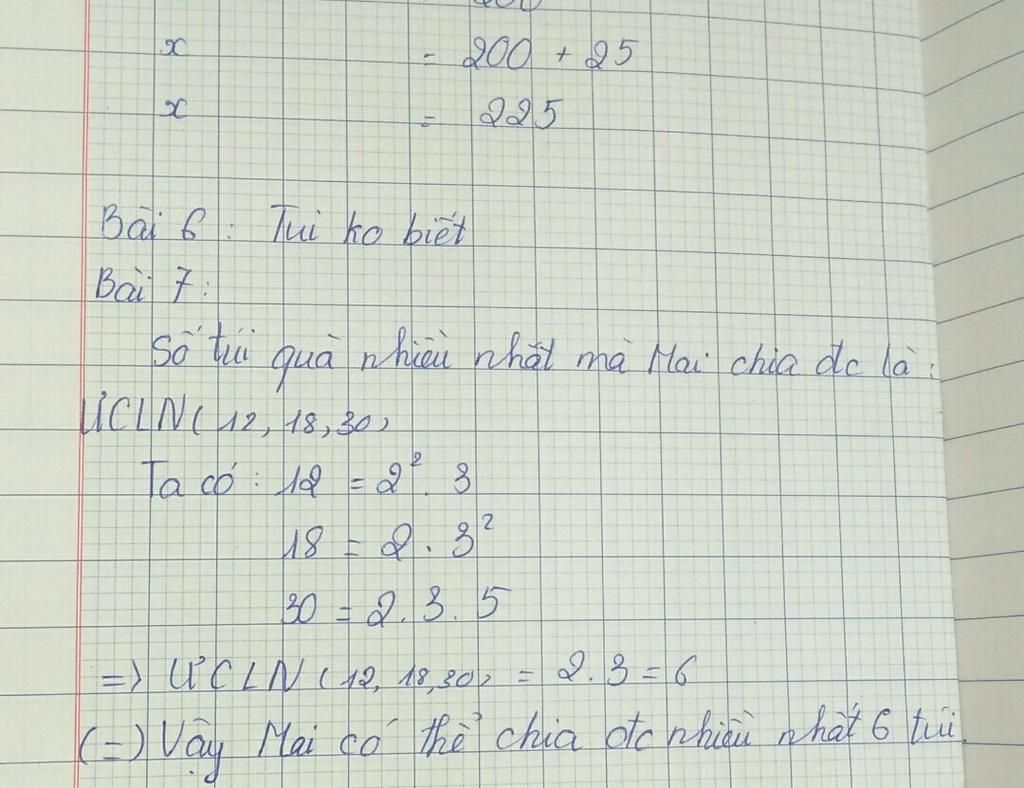 x = 200 + 25
x = 225
Bài 6 : Tui ko biết
Bài 7 :
Số túi quà nhiều nhất mà Mai chia đc là :
ƯCLN( 12, 18, 30)
Ta có : 12 = 2². 3
18 = 2 . 3²
30 = 2. 3. 5
=> ƯCLN (12, 18, 30) = 2. 3 = 6
(=) Vậy Mai có thể chia đc nhiều nhất 6 túi.